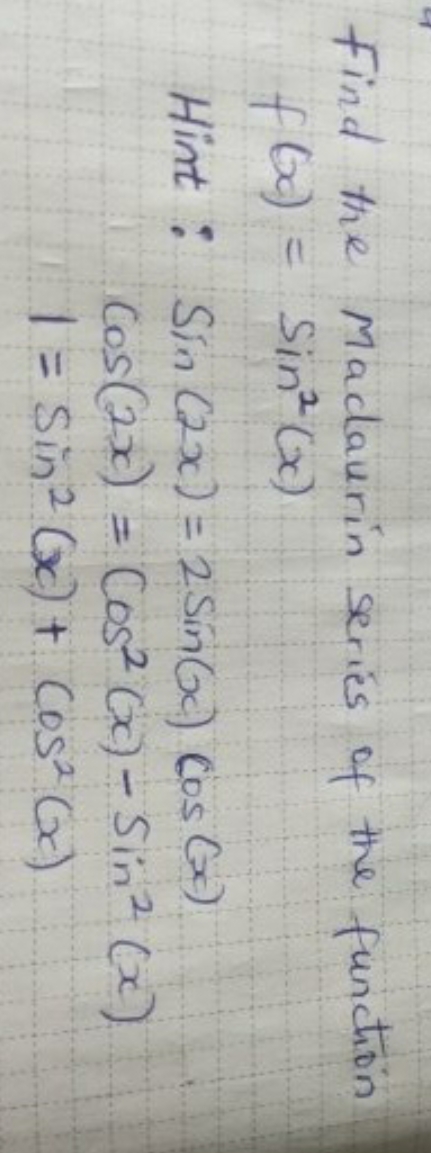 Find the Maclaurin series of the function
f(x) = Sin²(x)
Hint : Sin(2x) = 2Sin(x) Cos(x)
Cos(2x) = Cos²(x) - Sin²(x)
1 = Sin²(x) + Cos²(x)